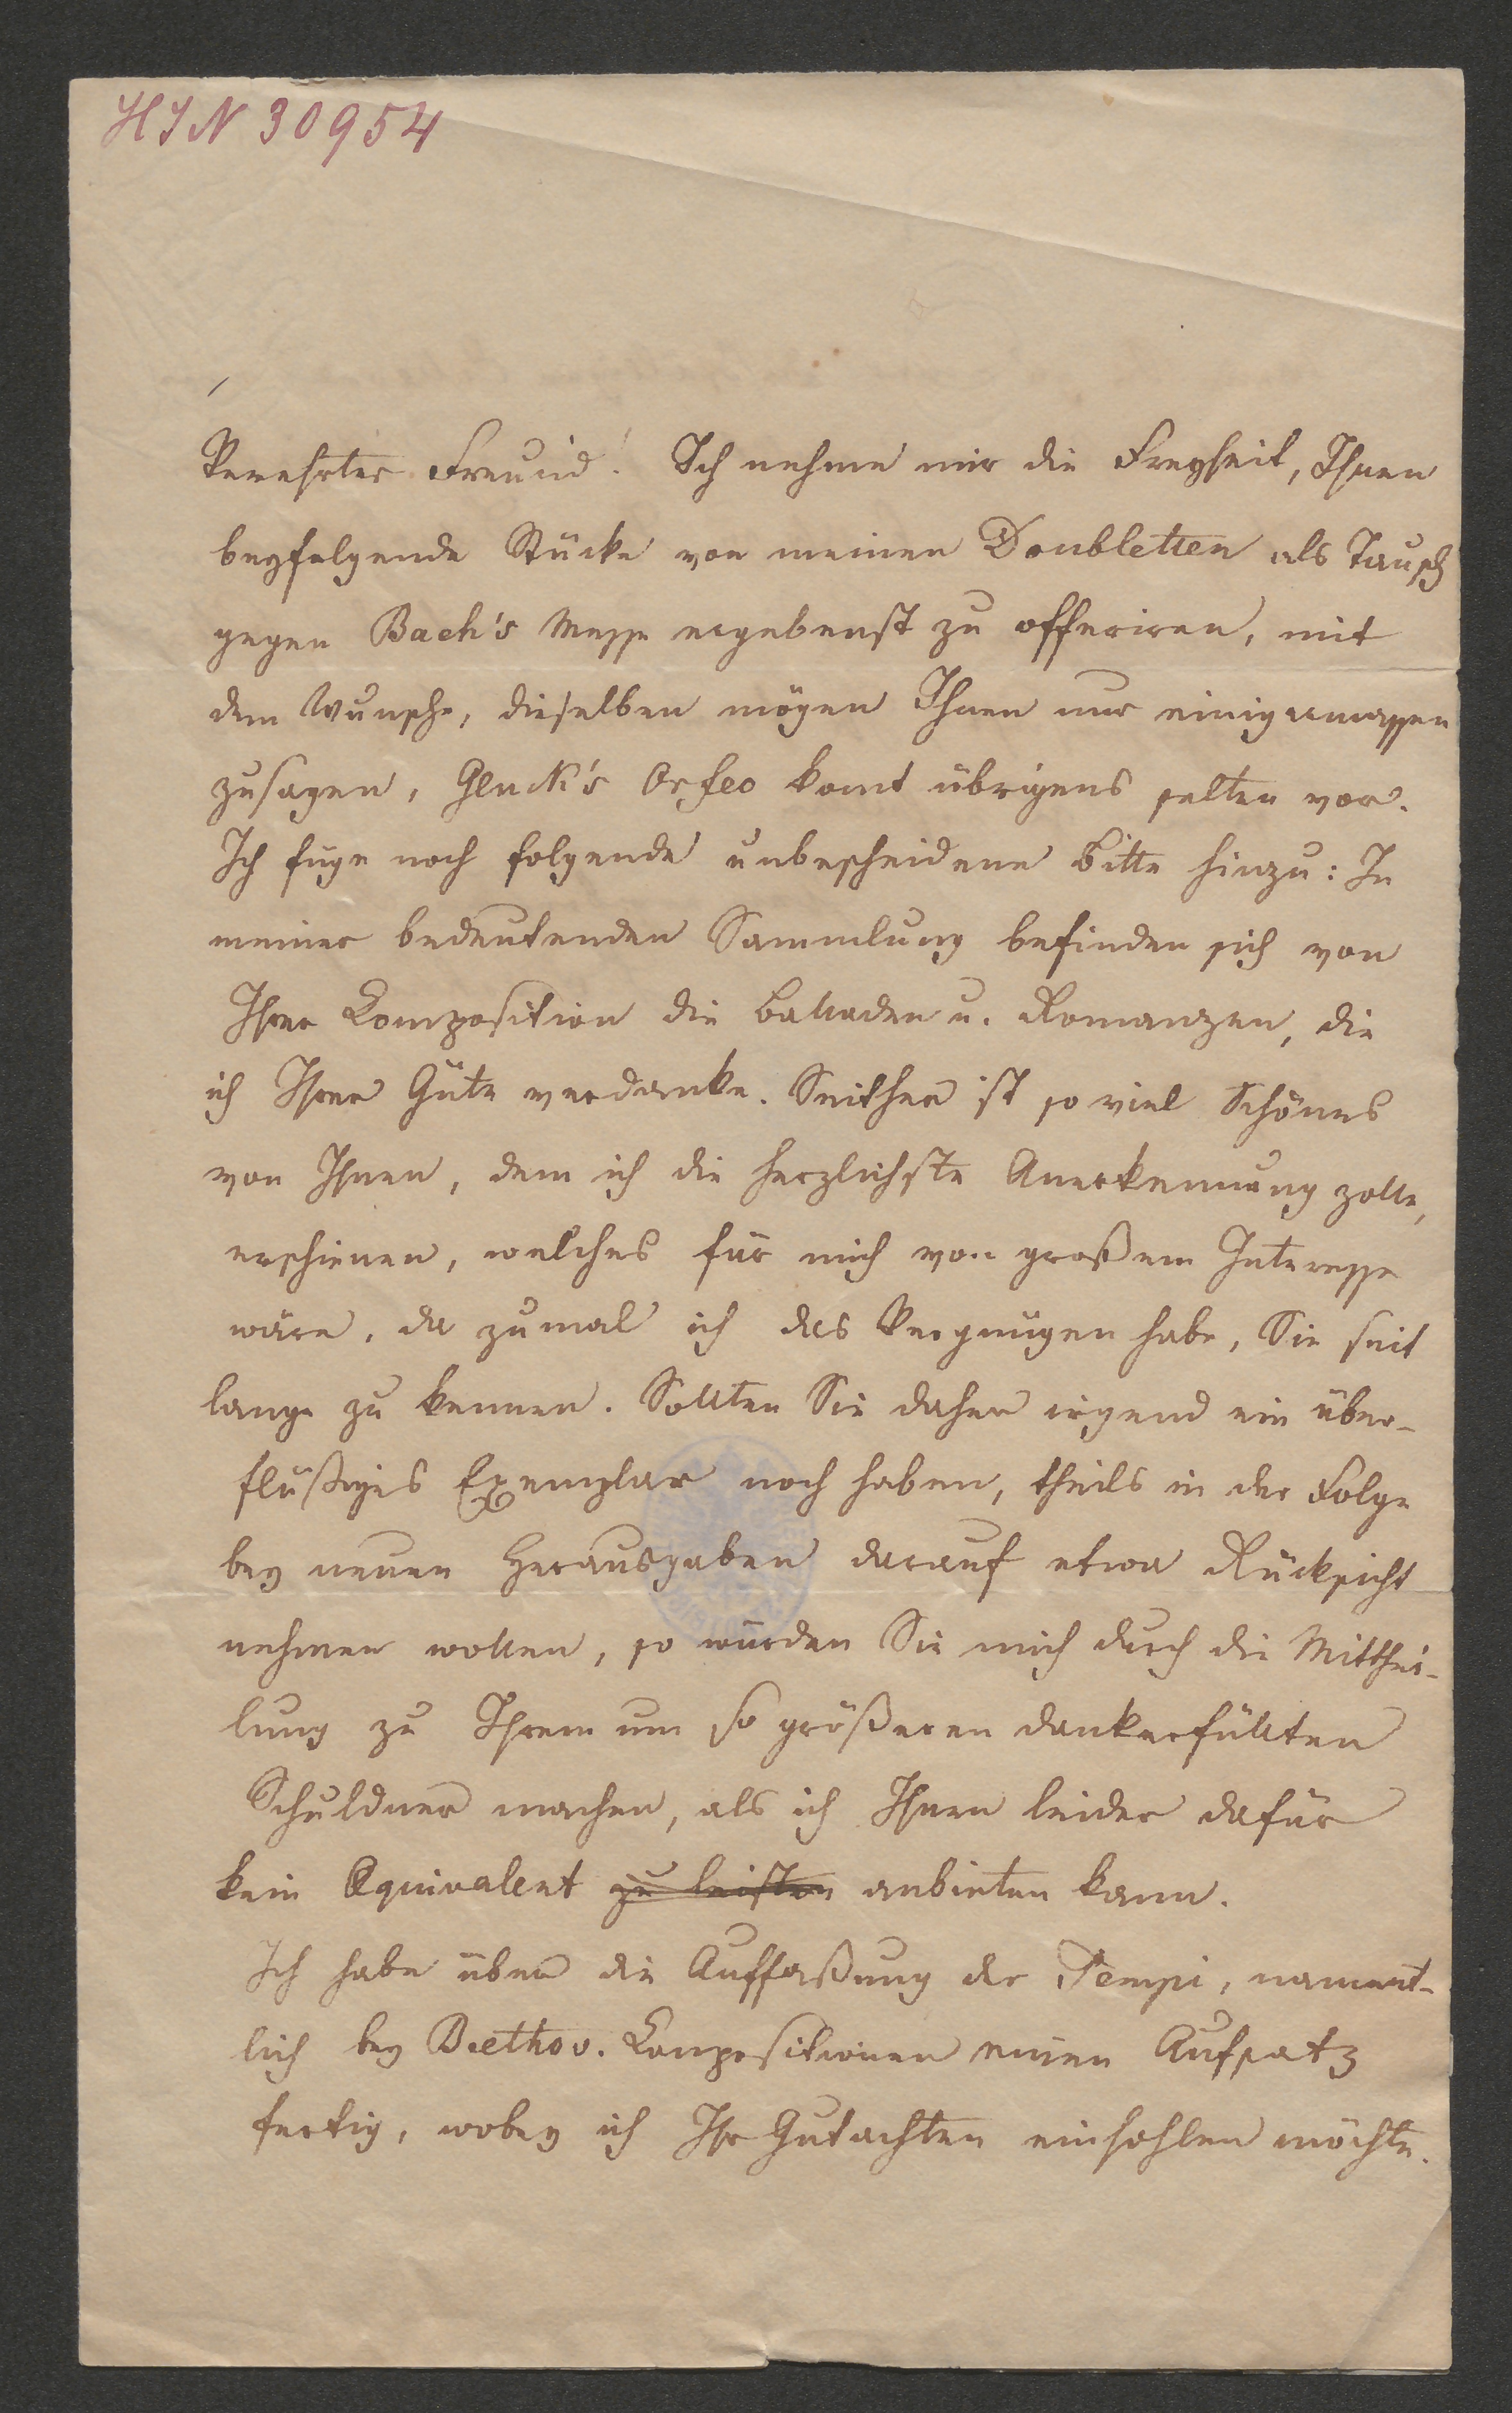 HIN 30954
Verehrter Freund! Ich nehme mir die Freyheit, Ihnen
beyfolgende Stücke von meinen Doubletten als Tausch
gegen Bach's Messe ergebenst zu offeriren, mit
dem Wunsche, dieselben mögen Ihnen nur einigermassen
zusagen, Gluck's Orfeo komt übrigens selten vor.
Ich füge noch folgende unbescheidene Bitte hinzu: In
meiner bedeutenden Sammlung befinden sich von
Ihrer Composition die Balladen u. Romanzen, die
ich Ihrer Güte verdanke. Seither ist so viel Schönes
von Ihnen, dem ich die herzlichste Anerkennung zolle,
erschienen, welches für mich von großem Interesse
wäre, da zumal ich das Vergnügen habe, Sie seit
lange zu kennen. Sollten Sie daher irgend ein über-
flüßiges Exemplar noch haben, theils in der Folge
bey neuen Herausgaben darauf etwa Rücksicht
nehmen wollen, so würden Sie mich durch die Mitthei-
lung zu Ihrem um so größeren dankerfüllten
Schuldner machen, als ich Ihnen leider dafür
kein Equivalent zu leisten anbieten kann.
Ich habe über die Auffaßung der Tempi, nament-
lich bey Beethov. Compositionen einen Aufsatz
fertig, wobey ich Ihr Gutachten einhohlen möchte.